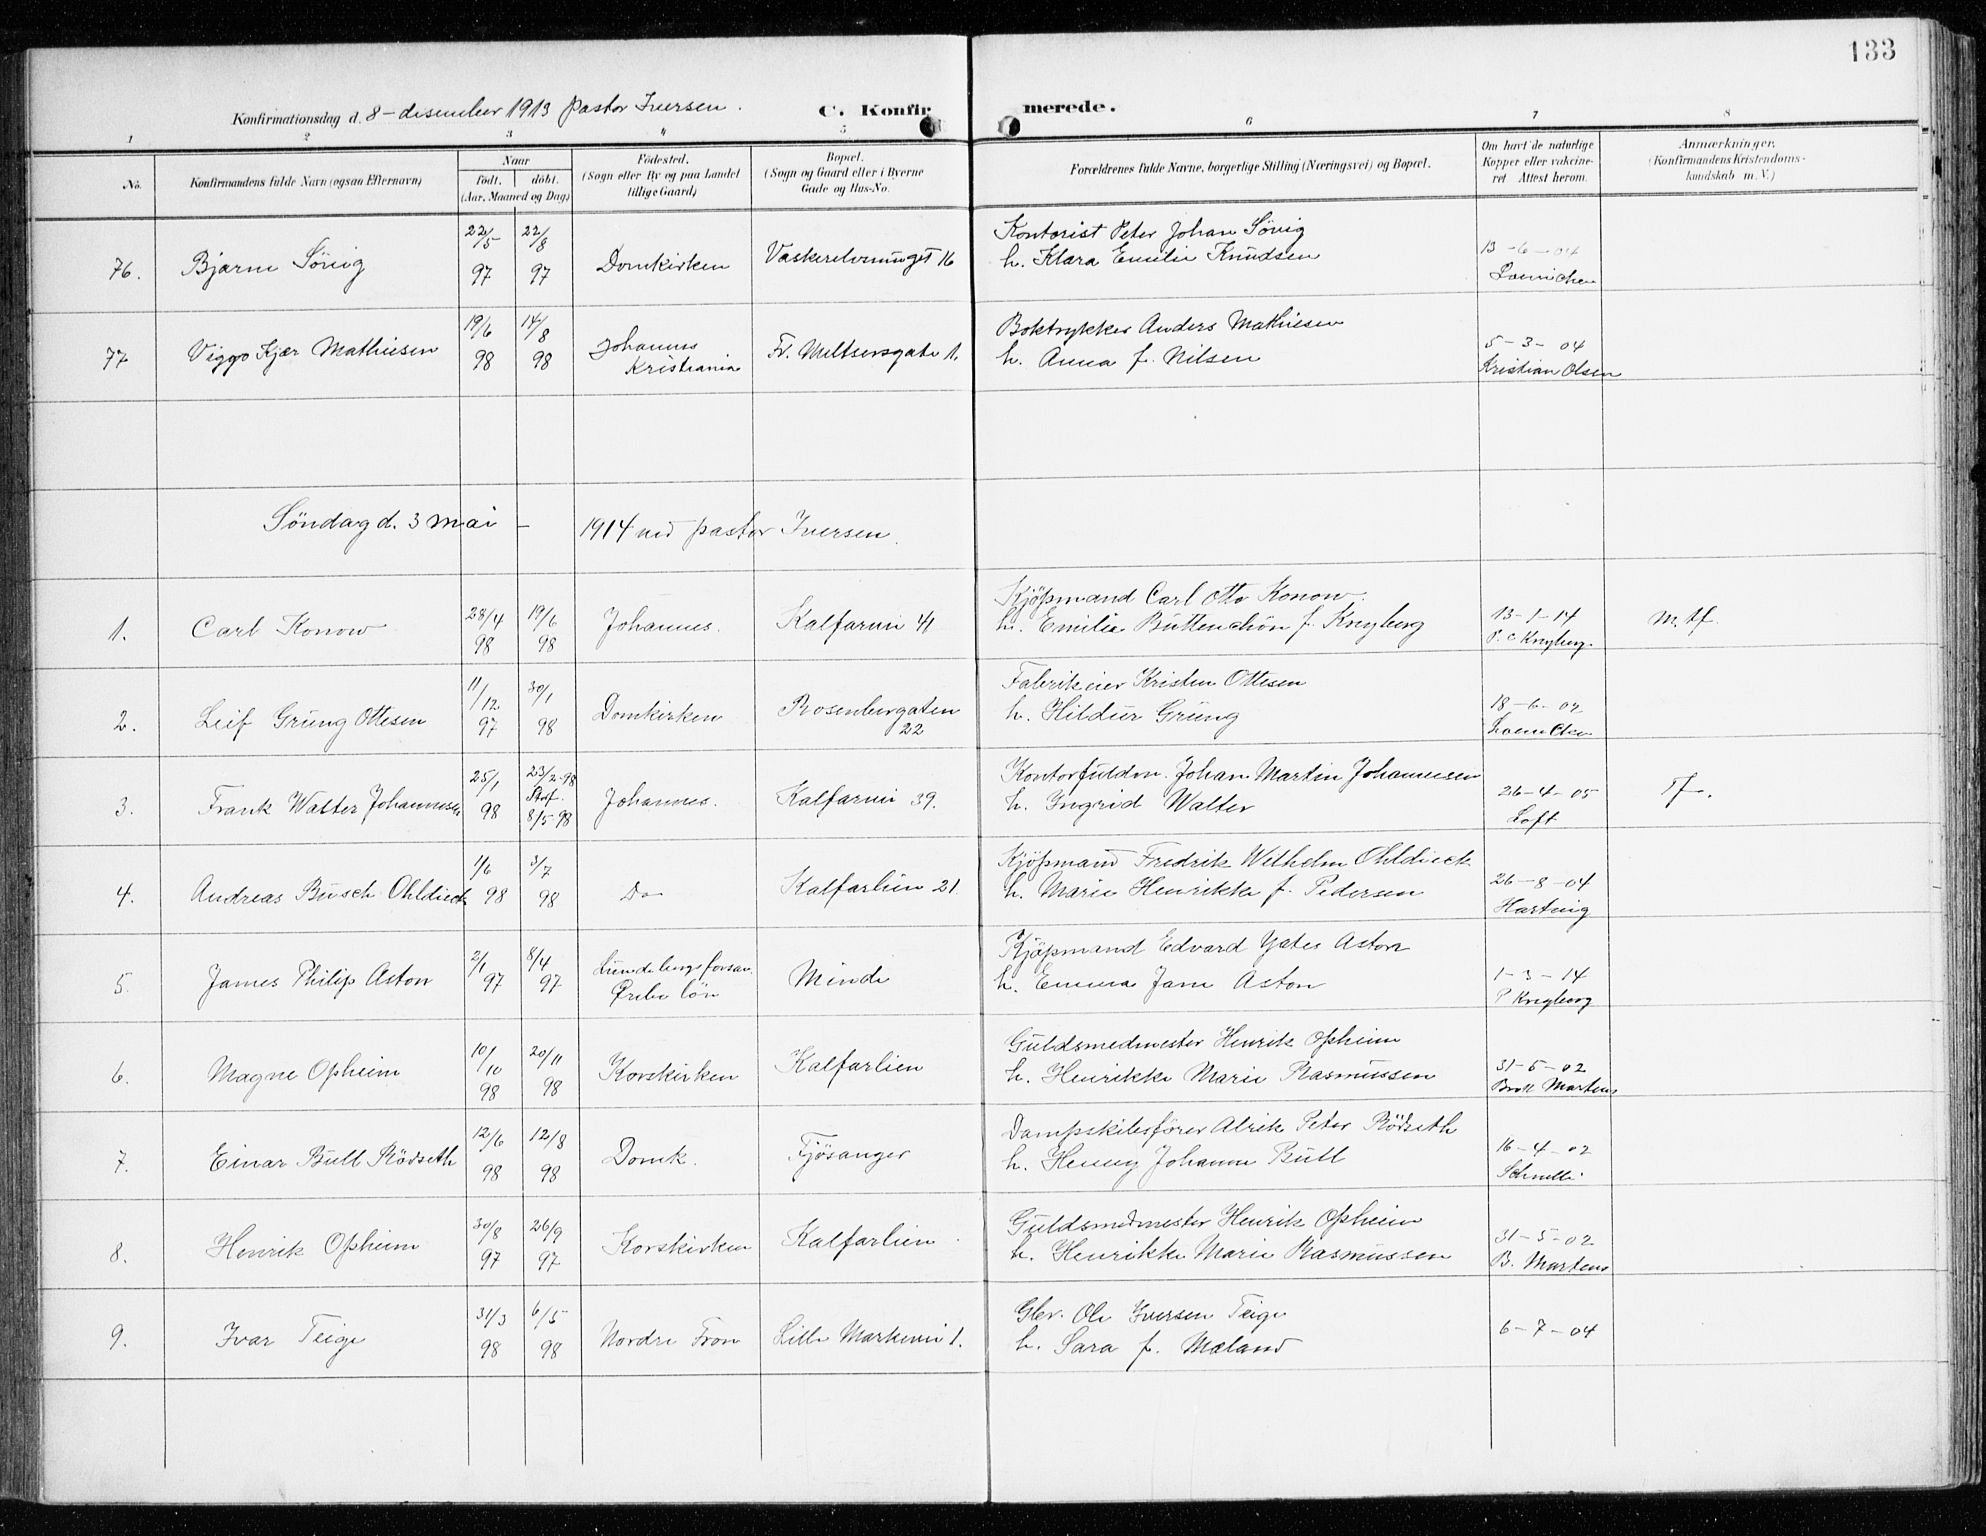 133
Konfirmationsdag d. 8 - desember 1913 pastor Iversen.
C. Konfirmerede.
1 2 3 4 5 6 7 8
No.
Konfirmandens fulde Navn (ogsaa Efternavn)
Naar
født. døbt.
(Aar, Maaned og Dag)
Fødested.
(Sogn eller By og paa Landet
tillige Gaard)
Bopæl.
(Sogn og Gaard eller i Byerne
Gade og Hus-No.
Forældrenes fulde Navne, borgerlige Stilling (Næringsvei) og Bopæl.
Om havt de naturlige
Kopper eller vakcine-
ret Attest herom.
Anmærkninger,
(Konfirmandens Kristendoms-
kundskab m. V.)
76. Bjarne Sörig 22/5 97 22/8 97 Domkirken 16
Kontorist Peter Johan Sörig
h. Klara Emilie Knudsen
13-6-04
77 Viggo Kjær Mathiesen 19/6 98 14/8 98 Johannes Kristiania Fr. Meltsersgate 1.
Boktrykker Anders Mathiesen
h. Anna f. Nilsen
5-3-04
Kristian Olsen
Söndag d. 3 mai - 1914 ved pastor Iversen.
1. Carl Konow 28/4 98 19/6 98 Johannes. Kalfarvei 41
Kjöpmand Carl Otto Konow.
h. Emilie Büttenchön f. Kreyberg
13-1-14
P. C Kreyberg.
2. Leif Grüng Ottesen 11/12 97 30/1 98 Domkirken Rosenbergaten 22
Fabrikeier Kristen Ottesen
h. Hildur Grüng
18-6-02
3. Frank Walter Johannesen 25/1 98 23/2-98 Stdf. 8/5-98 Johannes. Kalfarvei 39.
Kontorfuldm. Johan Martin Johannesen
h. Ingrid Walter
26-4-05
Loft
4. Andreas Busch Ohldieck 1/6 98 3/7 98 Do Kalfarlien 21
Kjöpmand Fredrik Wilhelm Ohldieck
h. Marie Henrikke f. Pedersen
26-8-04
Hartvig
5. James Philip Aston 2/1 97 8/4 97 Minde
Kjöpmand Edvard Yates Aston
h. Emma Jane Aston
1-3-14
P Kreyberg
6. Magne Opheim 10/10 98 20/11 98 Korskirken Kalfarlien
Guldsmedmester Henrik Opheim
h. Henrikke Marie Rasmussen
31-5-02
Martens
7. Einar Bull Rödseth 12/6 98 12/8 98 Domk. Fjösanger
Dampskibsförer Alrik Peter Rödseth
h. Henny Johanne Bull
16-4-02
8. Henrik Opheim 30/8 97 26/9 97 Korskirken Kalfarlien
Guldsmedmester Henrik Opheim
h. Henrikke Marie Rasmussen
31-5-02
B. Martens
9. Ivar Teige 31/3 98 6/5 98 Nordre Fron Lille Markevei 1.
Gbr. Ole Iversen Teige
h. Sara f. Mæland
6-7-04